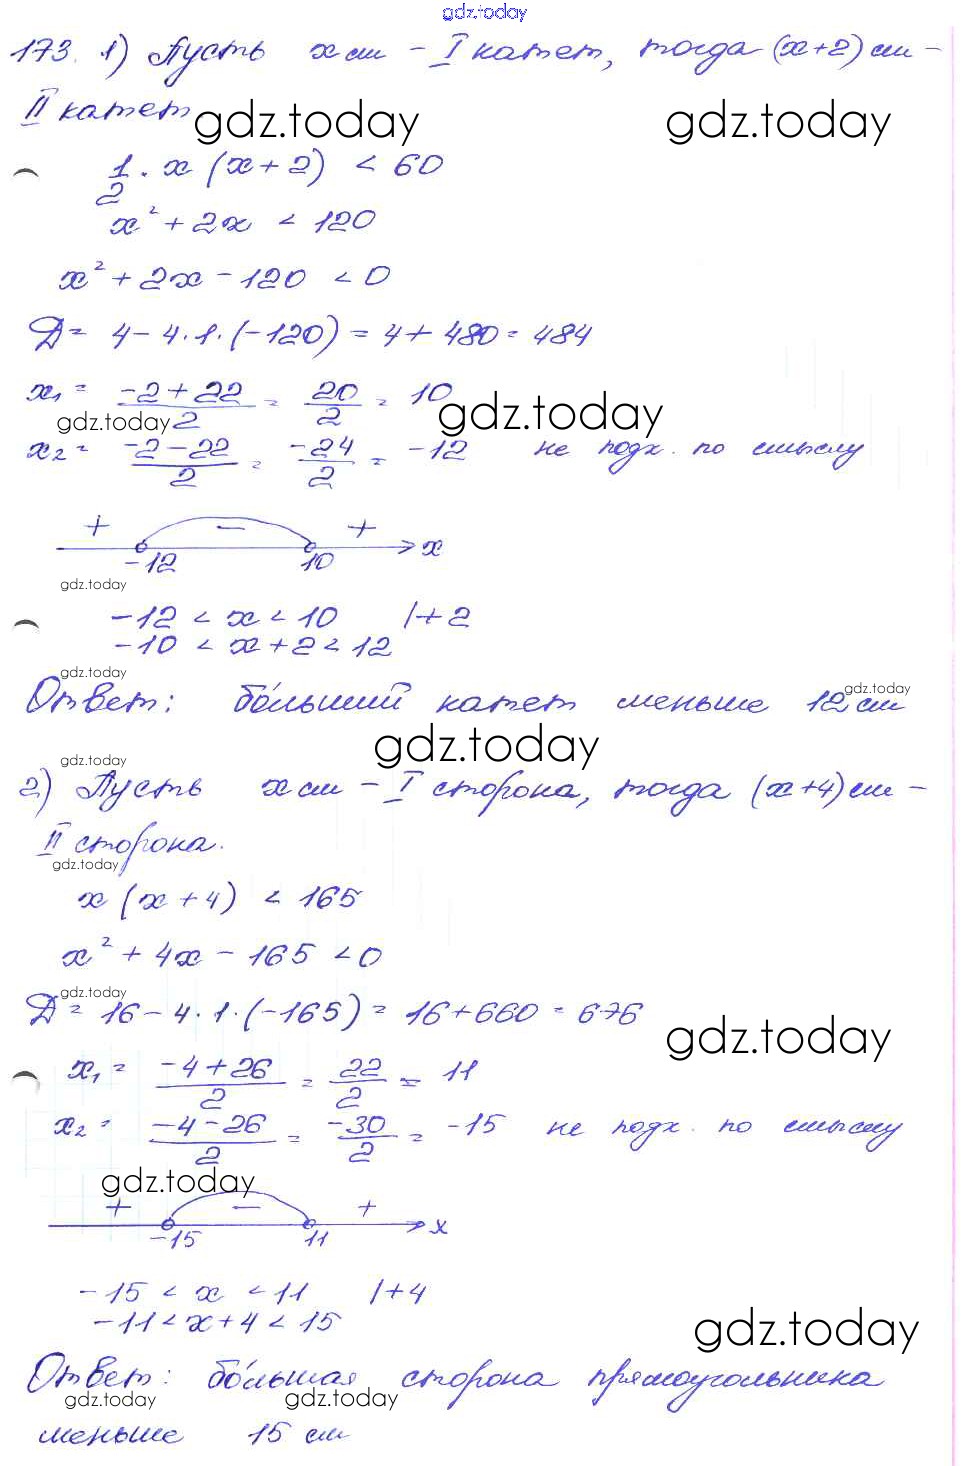 gdz.today
173. 1) Пусть x см – I катет, тогда (x+2) см –
II катет
gdz.today gdz.today
1/2 · x (x+2) < 60
x² + 2x < 120
x² + 2x – 120 < 0
Д = 4 – 4·1·(–120) = 4 + 480 = 484
x₁ = (–2+22)/2 = 20/2 = 10
gdz.today gdz.today
x₂ = (–2–22)/2 = –24/2 = –12 не подх. по смыслу
+ – +
–12 10 x
gdz.today
–12 < x < 10 |+2
–10 < x+2 < 12
gdz.today gdz.today
Ответ: бо́льший катет меньше 12 см
gdz.today
gdz.today
2) Пусть x см – I сторона, тогда (x+4) см –
II сторона.
gdz.today
x (x+4) < 165
x² + 4x – 165 < 0
gdz.today
Д = 16 – 4·1·(–165) = 16+660 = 676
gdz.today
x₁ = (–4+26)/2 = 22/2 = 11
x₂ = (–4–26)/2 = –30/2 = –15 не подх. по смыслу
gdz.today
+ – +
–15 11 x
–15 < x < 11 |+4
–11 < x+4 < 15
gdz.today
Ответ: бо́льшая сторона прямоугольника
gdz.today gdz.today
меньше 15 см